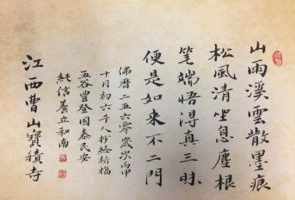 山雨溪雲散墨痕
松風清坐息塵根
笔端悟得真三昧
便是如来不二門
佛曆二五六零歲次丙申
十月初六午八抄经祈福
五谷豐登國泰民安
純信養立和南
江西曹山寶積寺